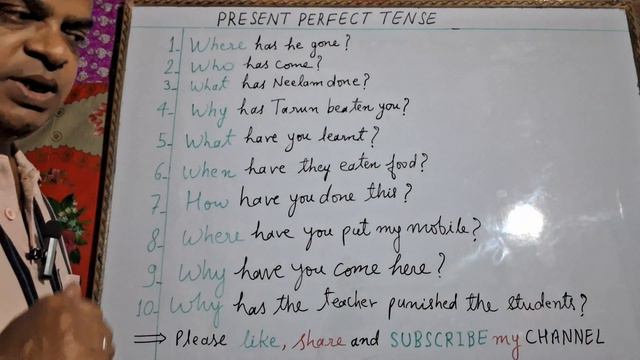 PRESENT PERFECT TENSE
1. Where has he gone?
2. Who has come?
3. What has Neelam done?
4. Why has Tarun beaten you?
5. What have you learnt?
6. When have they eaten food?
7. How have you done this?
8. Where have you put my mobile?
9. Why have you come here?
10. Why has the teacher punished the students?
⇒ Please like, share and SUBSCRIBE my CHANNEL